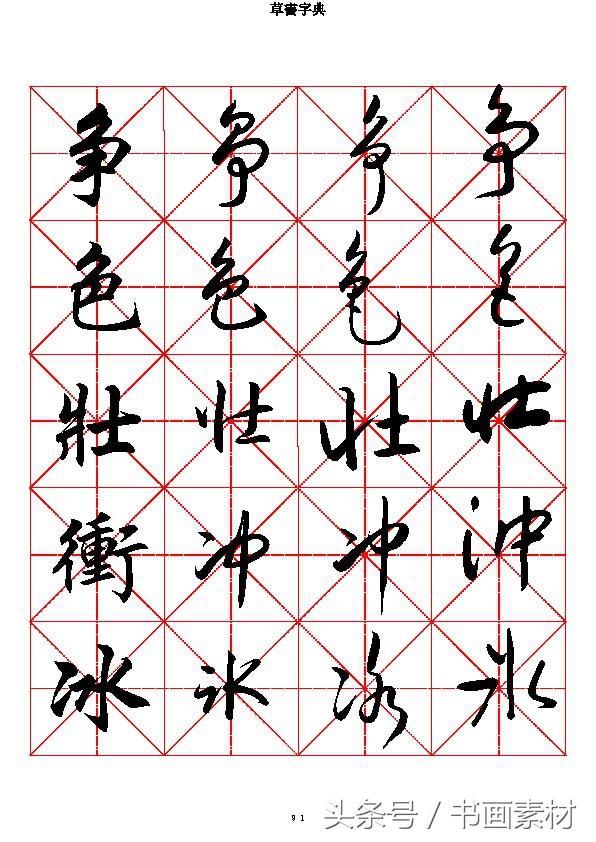 草書字典
争 争 争 争
色 色 色 色
壯 壮 壮 壮
衝 冲 冲 沖
冰 冰 冰 冰
91
头条号 / 书画素材